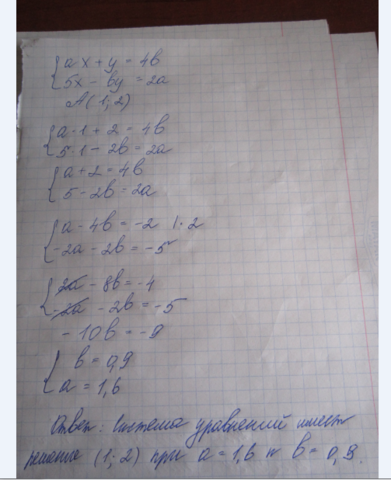 {ax + y = 4b
{5x - by = 2a
A(1; 2)
{a·1 + 2 = 4b
{5·1 - 2b = 2a
{a + 2 = 4b
{5 - 2b = 2a
{a - 4b = -2 |·2
{-2a - 2b = -5
{2a - 8b = -4
{-2a - 2b = -5
-10b = -9
{b = 0,9
{a = 1,6
Ответ: система уравнений имеет
решение (1; 2) при a = 1,6 и b = 0,9.